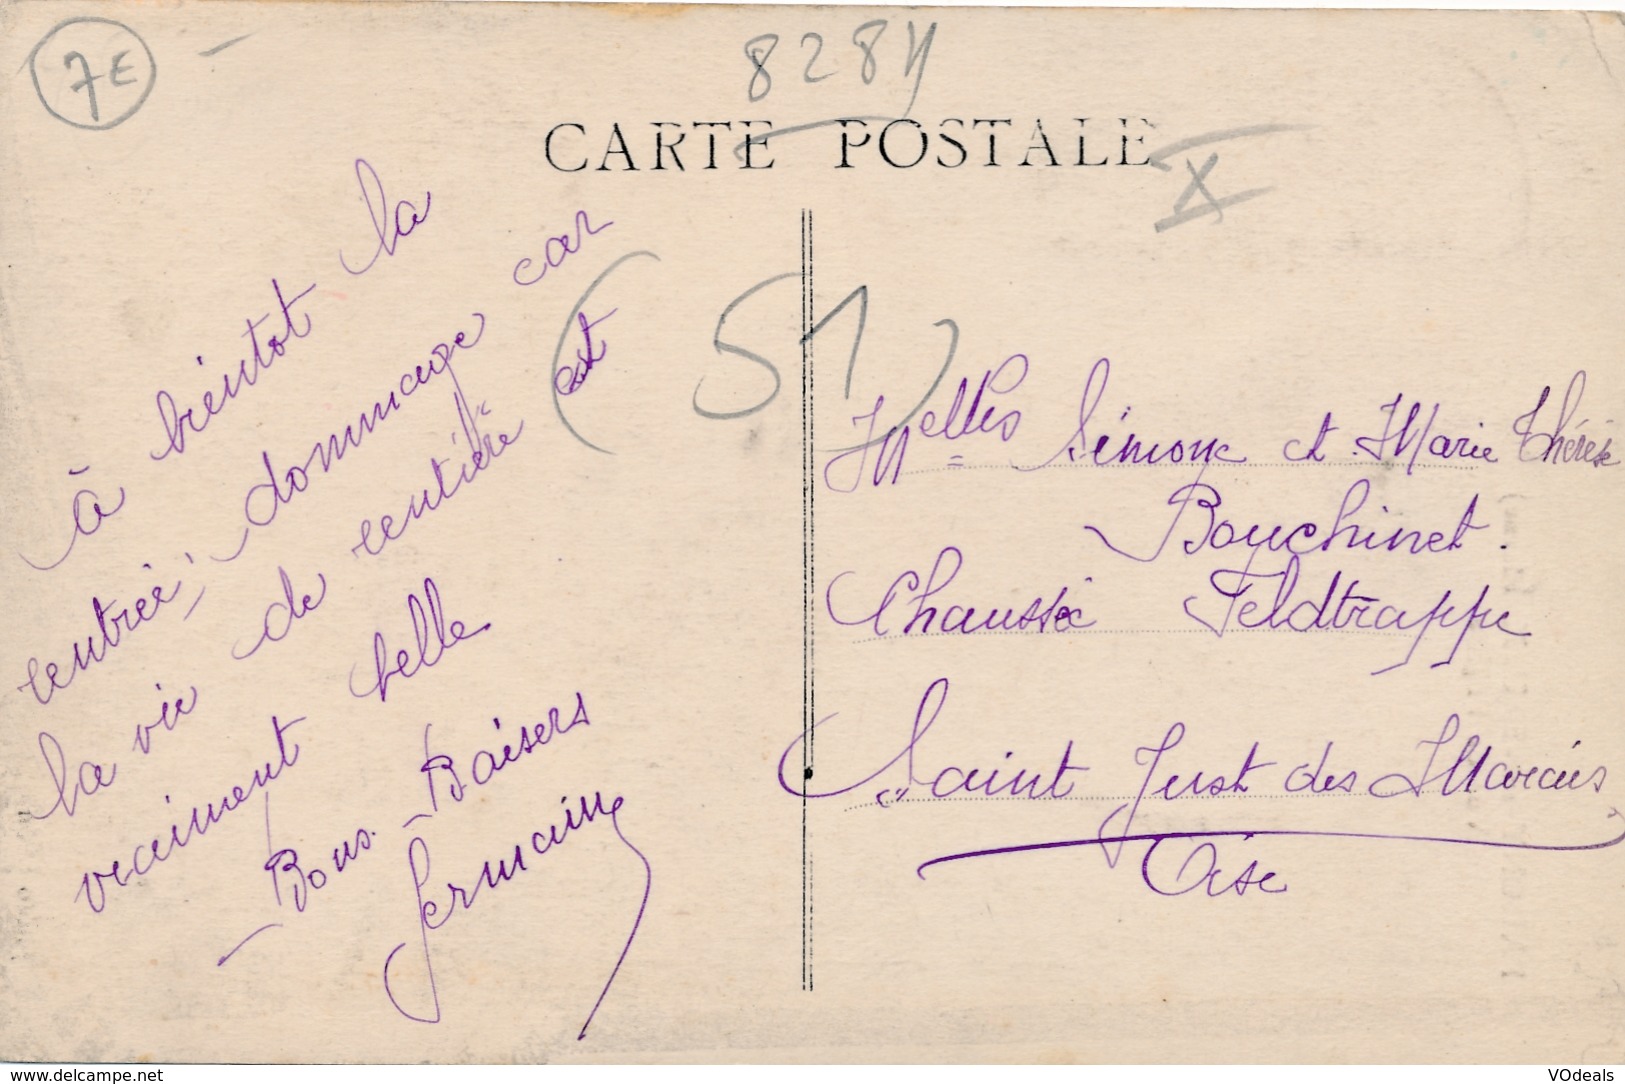 7E
828
CARTE POSTALE
X
(51)
à bientôt la
rentrée, dommage car
la vie de "rentière" est
vraiment belle
Bons Baisers
Germaine
Melles Simone et Marie Thérèse
Bouchinet.
Chaussée Feldtrappe
Saint Just des Marais
Oise
www.delcampe.net
VOdeals